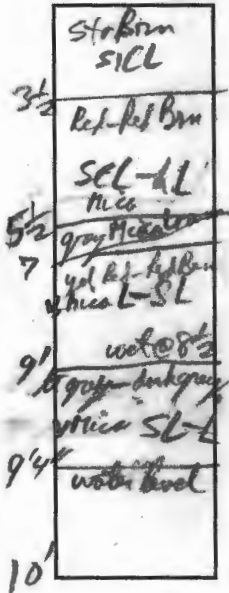 StrBrn
SiCL
3½
Red-Red Brn
SCL-CL
Mica
5½
gray Mica
7
yel Red-Red Brn
vMica L-SL
wet @ 8½
9'
gray-dark gray
vMica SL-L
9'4"
water level
10'